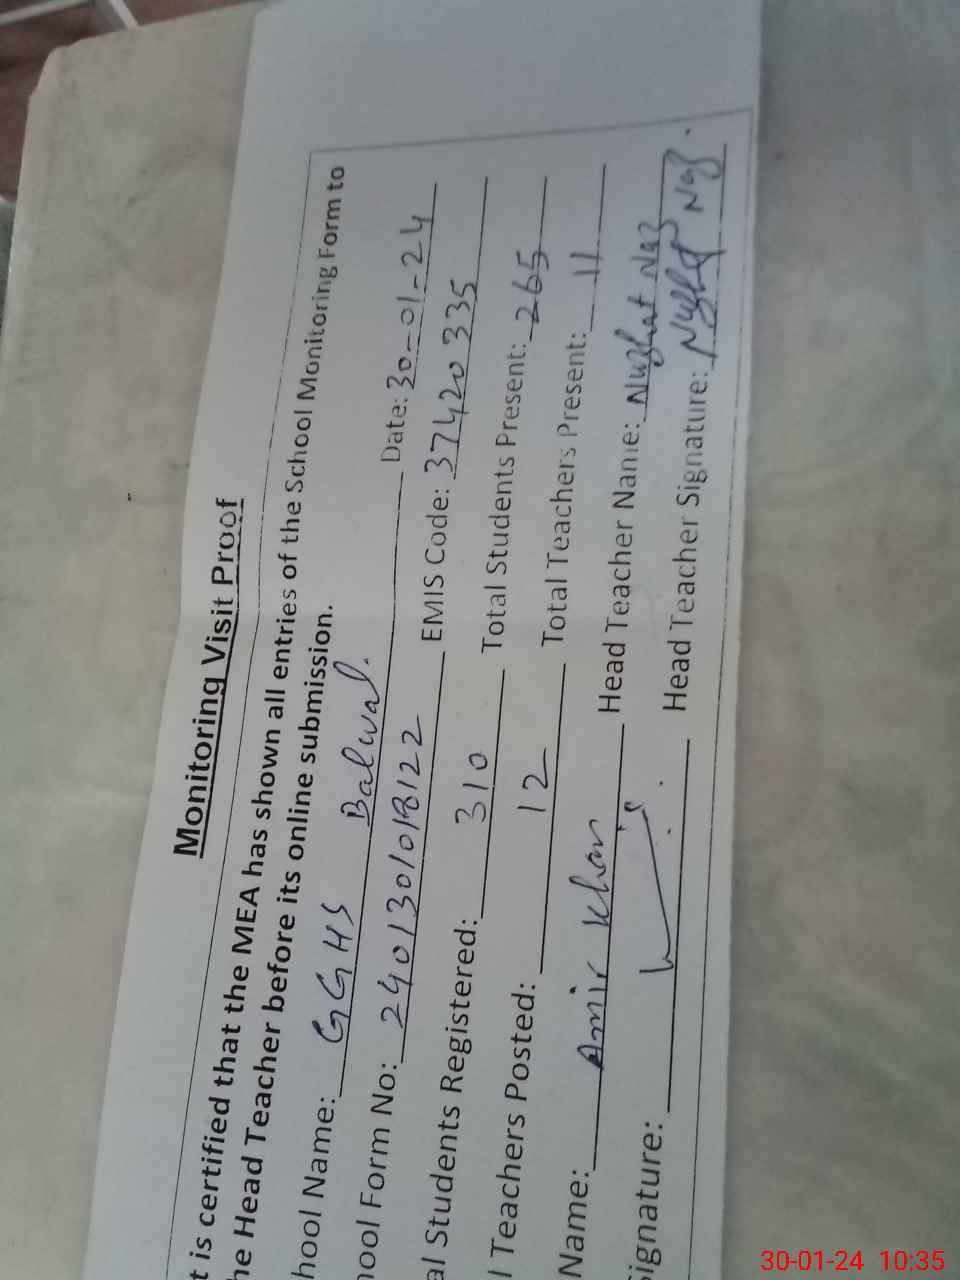 Monitoring Visit Proof
t is certified that the MEA has shown all entries of the School Monitoring Form to
he Head Teacher before its online submission.
hool Name: GGHS Balwal. Date: 30-01-24
hool Form No: 2401301018122 EMIS Code: 37420335
al Students Registered: 310 Total Students Present: 265
l Teachers Posted: 12 Total Teachers Present: 11
Name: Amir Khan Head Teacher Name: Nuzhat Naz
ignature: Head Teacher Signature: Nuzhat Naz.
30-01-24 10:35